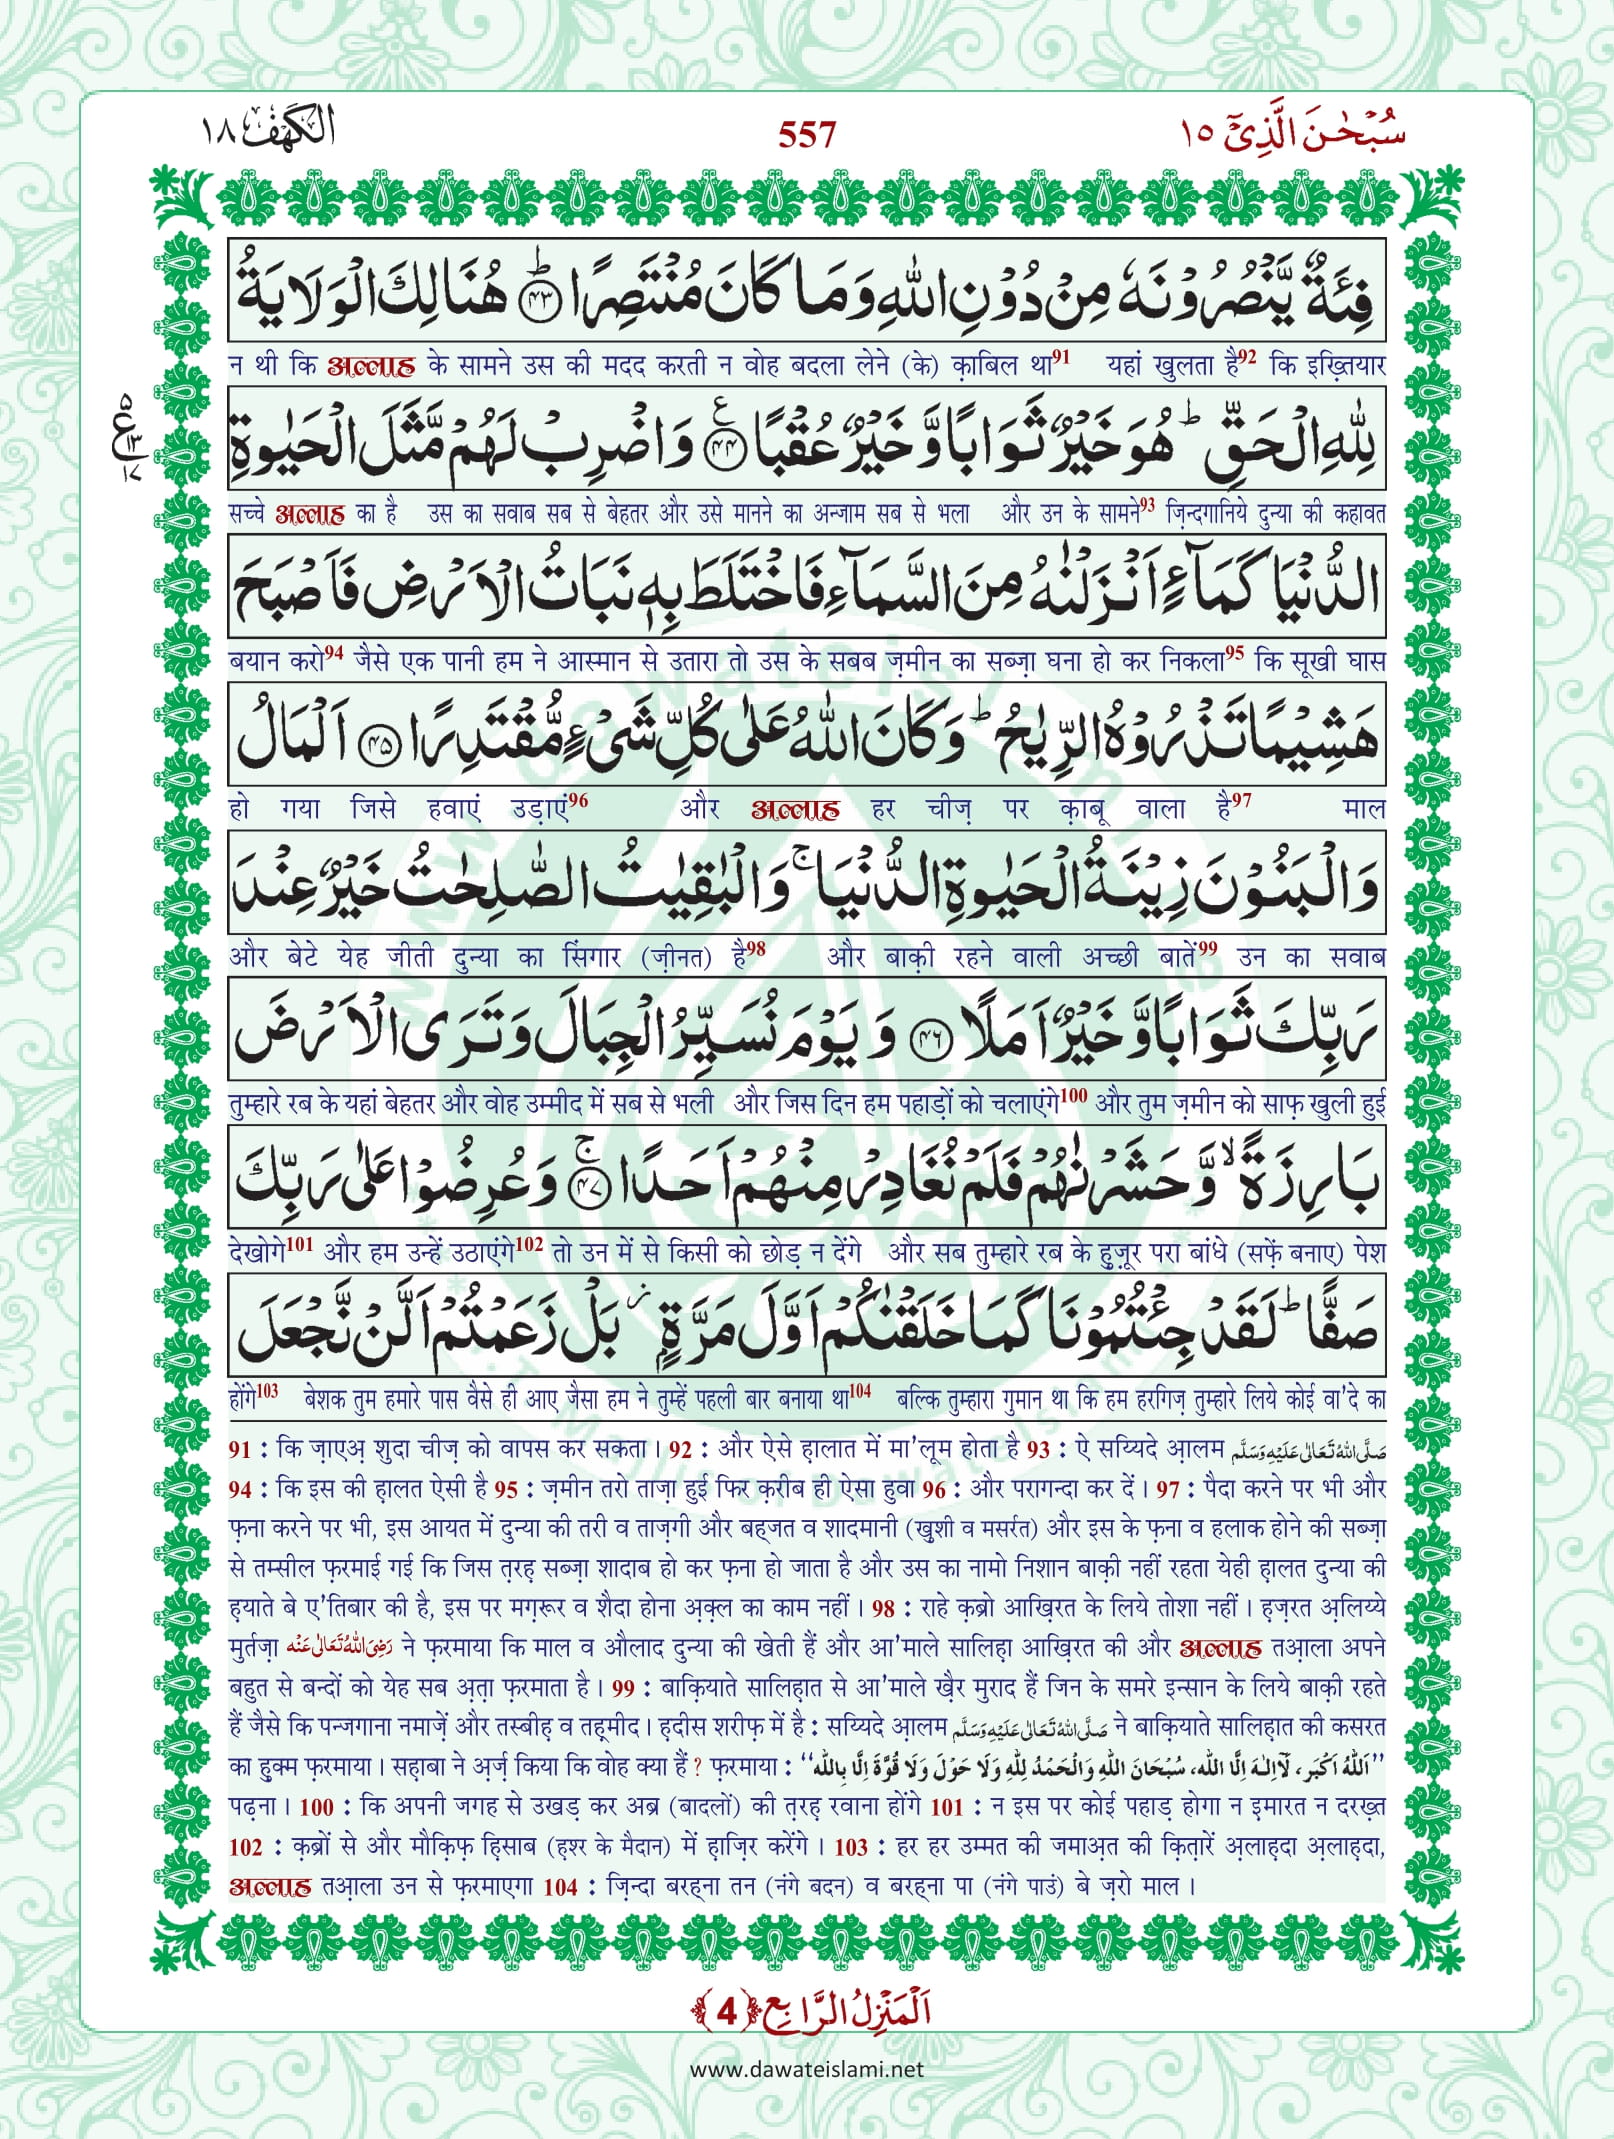 سُبْحٰنَ الَّذِیْۤ ١٥
557
الكَهْف ١٨
فِئَةٌ یَّنْصُرُوْنَهٗ مِنْ دُوْنِ اللّٰهِ وَ مَا كَانَ مُنْتَصِرًاؕ ﴿۴۳﴾ هُنَالِكَ الْوَلَایَةُ
न थी कि अल्लाह के सामने उस की मदद करती न वोह बदला लेने (के) क़ाबिल था91 यहां खुलता है92 कि इख़्तियार
لِلّٰهِ الْحَقِّؕ هُوَ خَیْرٌ ثَوَابًا وَّ خَیْرٌ عُقْبًا۠ ﴿۴۴﴾ وَ اضْرِبْ لَهُمْ مَّثَلَ الْحَیٰوةِ
ع
۵
۱۳
۱۷
सच्चे अल्लाह का है उस का सवाब सब से बेहतर और उसे मानने का अन्जाम सब से भला और उन के सामने93 ज़िन्दगानिये दुन्या की कहावत
الدُّنْیَا كَمَآءٍ اَنْزَلْنٰهُ مِنَ السَّمَآءِ فَاخْتَلَطَ بِهٖ نَبَاتُ الْاَرْضِ فَاَصْبَحَ
बयान करो94 जैसे एक पानी हम ने आस्मान से उतारा तो उस के सबब ज़मीन का सब्ज़ा घना हो कर निकला95 कि सूखी घास
هَشِیْمًا تَذْرُوْهُ الرِّیٰحُؕ وَ كَانَ اللّٰهُ عَلٰى كُلِّ شَیْءٍ مُّقْتَدِرًا ﴿۴۵﴾ اَلْمَالُ
हो गया जिसे हवाएं उड़ाएं96 और अल्लाह हर चीज़ पर क़ाबू वाला है97 माल
وَ الْبَنُوْنَ زِیْنَةُ الْحَیٰوةِ الدُّنْیَاۚ وَ الْبٰقِیٰتُ الصّٰلِحٰتُ خَیْرٌ عِنْدَ
और बेटे येह जीती दुन्या का सिंगार (ज़ीनत) है98 और बाक़ी रहने वाली अच्छी बातें99 उन का सवाब
رَبِّكَ ثَوَابًا وَّ خَیْرٌ اَمَلًا ﴿۴۶﴾ وَ یَوْمَ نُسَیِّرُ الْجِبَالَ وَ تَرَى الْاَرْضَ
तुम्हारे रब के यहां बेहतर और वोह उम्मीद में सब से भली और जिस दिन हम पहाड़ों को चलाएंगे100 और तुम ज़मीन को साफ़ खुली हुई
بَارِزَةًۙ وَّ حَشَرْنٰهُمْ فَلَمْ نُغَادِرْ مِنْهُمْ اَحَدًاۚ ﴿۴۷﴾ وَ عُرِضُوْا عَلٰى رَبِّكَ
देखोगे101 और हम उन्हें उठाएंगे102 तो उन में से किसी को छोड़ न देंगे और सब तुम्हारे रब के हुज़ूर परा बांधे (सफ़ें बनाए) पेश
صَفًّاؕ لَقَدْ جِئْتُمُوْنَا كَمَا خَلَقْنٰكُمْ اَوَّلَ مَرَّةٍ٘ بَلْ زَعَمْتُمْ اَلَّنْ نَّجْعَلَ
होंगे103 बेशक तुम हमारे पास वैसे ही आए जैसा हम ने तुम्हें पहली बार बनाया था104 बल्कि तुम्हारा गुमान था कि हम हरगिज़ तुम्हारे लिये कोई वा'दे का
91 : कि ज़ाएअ़ शुदा चीज़ को वापस कर सकता। 92 : और ऐसे ह़ालात में मा'लूम होता है 93 : ऐ सय्यिदे आ़लम صَلَّى اللهُ تَعَالٰى عَلَيْهِ وَسَلَّم
94 : कि इस की ह़ालत ऐसी है 95 : ज़मीन तरो ताज़ा हुई फिर क़रीब ही ऐसा हुवा 96 : और परागन्दा कर दें। 97 : पैदा करने पर भी और
फ़ना करने पर भी, इस आयत में दुन्या की तरी व ताज़गी और बह्जत व शादमानी (खुशी व मसर्रत) और इस के फ़ना व हलाक होने की सब्ज़ा
से तम्सील फ़रमाई गई कि जिस त़रह़ सब्ज़ा शादाब हो कर फ़ना हो जाता है और उस का नामो निशान बाक़ी नहीं रहता येही ह़ालत दुन्या की
ह़याते बे ए'तिबार की है, इस पर मग़रूर व शैदा होना अ़क़्ल का काम नहीं। 98 : राहे क़ब्रो आख़िरत के लिये तोशा नहीं। ह़ज़रत अ़लिय्ये
मुर्तज़ा رَضِىَ اللهُ تَعَالٰى عَنْه ने फ़रमाया कि माल व औलाद दुन्या की खेती हैं और आ'माले सालिह़ा आख़िरत की और अल्लाह तआ़ला अपने
बहुत से बन्दों को येह सब अ़त़ा फ़रमाता है। 99 : बाक़ियाते सालिह़ात से आ'माले ख़ैर मुराद हैं जिन के समरे इन्सान के लिये बाक़ी रहते
हैं जैसे कि पन्जगाना नमाज़ें और तस्बीह़ व तह़मीद। ह़दीस शरीफ़ में है : सय्यिदे आ़लम صَلَّى اللهُ تَعَالٰى عَلَيْهِ وَسَلَّم ने बाक़ियाते सालिह़ात की कसरत
का हु़क्म फ़रमाया। सह़ाबा ने अ़र्ज़ किया कि वोह क्या हैं? फ़रमाया : ''اَللّٰهُ اَكْبَر، لَآاِلٰهَ اِلَّا الله، سُبْحَانَ اللهِ وَالْحَمْدُ لِلّٰهِ وَلَا حَوْلَ وَلَا قُوَّةَ اِلَّا بِالله''
पढ़ना। 100 : कि अपनी जगह से उखड़ कर अब्र (बादलों) की त़रह़ रवाना होंगे 101 : न इस पर कोई पहाड़ होगा न इमारत न दरख़्त
102 : क़ब्रों से और मौक़िफ़े ह़िसाब (ह़श्र के मैदान) में ह़ाज़िर करेंगे। 103 : हर हर उम्मत की जमाअ़त की क़ित़ारें अ़लाह़दा अ़लाह़दा,
अल्लाह तआ़ला उन से फ़रमाएगा 104 : ज़िन्दा बरह्ना तन (नंगे बदन) व बरह्ना पा (नंगे पाउं) बे ज़रो माल।
اَلْمَنْزِلُ الرَّابِع ﴿4﴾
www.dawateislami.net